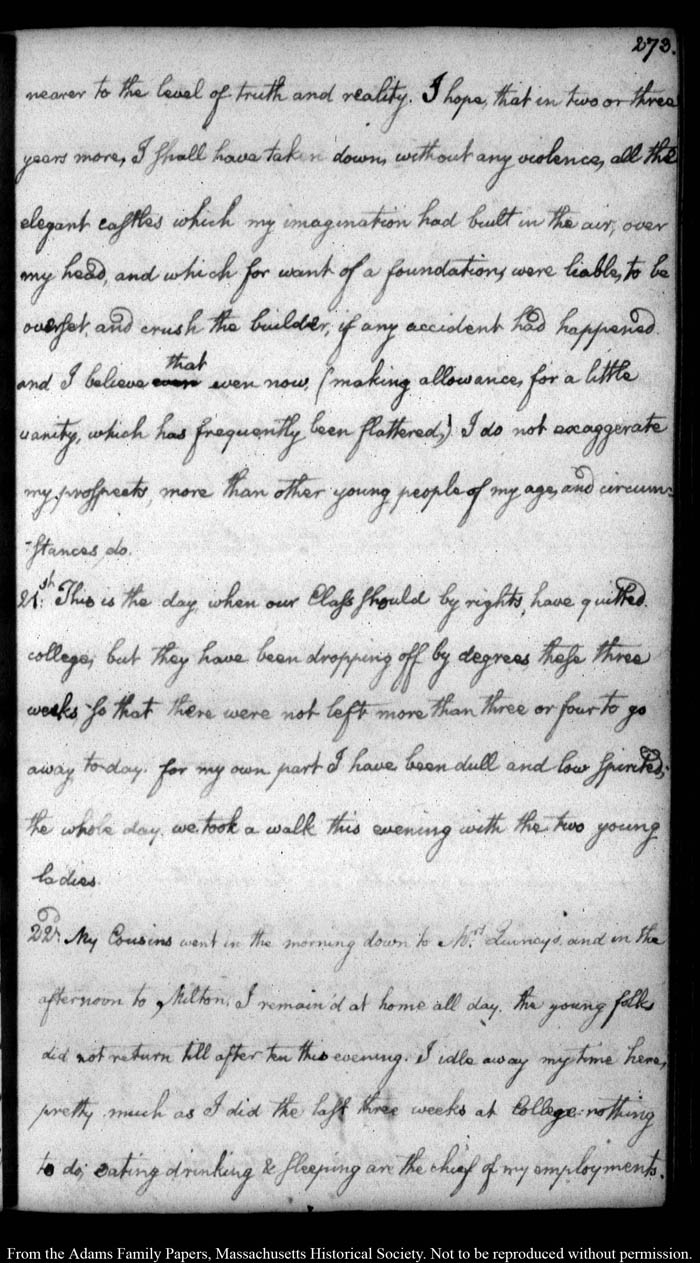 273.
nearer to the level of truth and reality. I hope, that in two or three
years more, I shall have taken down, without any violence, all the
elegant castles which my imagination had built in the air, over
my head, and which for want of a foundation, were liable, to be
overset, and crush the builder, if any accident had happened.
and I believe even that even now, (making allowance, for a little
vanity, which has frequently been flattered,) I do not exaggerate
my prospects, more than other young people of my age, and circum-
-stances, do.
21st. This is the day, when our Class should by rights, have quitted
college; but they have been dropping off by degrees these three
weeks so that there were not left more than three or four to go
away to-day. for my own part I have been dull and low spirited,
the whole day. we took a walk this evening with the two young
ladies.
22d. My Cousins went in the morning down to Mrs. Quincy's. and in the
afternoon to Milton. I remain'd at home all day. the young folks
did not return till after ten this evening. I idle away my time here,
pretty much as I did the last three weeks at College: nothing
to do; eating drinking & sleeping are the chief of my employments.
From the Adams Family Papers, Massachusetts Historical Society. Not to be reproduced without permission.